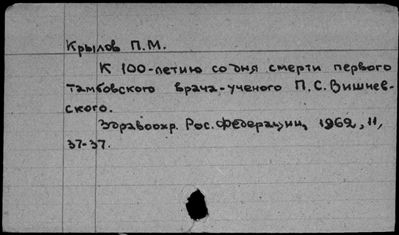 Крылов П.М.
К 100-летию со дня смерти первого
тамбовского врача-ученого П.С. Вишнев-
ского.
Здравоохр. Рос. Федерации, 1962, 11,
37-37.